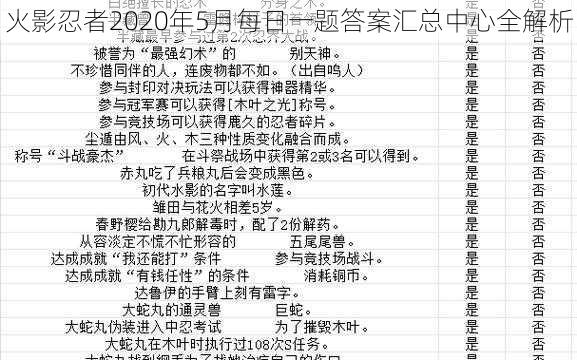 火影忍者2020年5月每日一题答案汇总中心全解析
白绝擅长的忍术 分身之术。 是 否
半藏最早参与过第2次忍界大战。 是 否
被誉为“最强幻术”的 别天神。 是 否
不珍惜同伴的人，连废物都不如。（出自鸣人） 是 否
参与封印对决玩法可以获得神器精华。 是 否
参与冠军赛可以获得[木叶之光]称号。 是 否
参与竞技场可以获得鹿久的忍者碎片。 是 否
尘遁由风、火、木三种性质变化融合而成。 是 否
称号“斗战豪杰” 在斗祭战场中获得第2或3名可以得到。 是 否
赤丸吃了兵粮丸后会变成黑色。 是 否
初代水影的名字叫水莲。 是 否
雏田与花火相差5岁。 是 否
春野樱给勘九郎解毒时，配了2份解药。 是 否
从容淡定不慌不忙形容的 五尾尾兽。 是 否
达成成就“我还能打”条件 参与竞技场战斗。 是 否
达成成就“有钱任性”的条件 消耗铜币。 是 否
达鲁伊的手臂上刻有雷字。 是 否
大蛇丸的通灵兽 巨蛇。 是 否
大蛇丸伪装进入中忍考试 为了摧毁木叶。 是 否
大蛇丸在木叶时执行过108次S任务。 是 否
大蛇丸找到纲手为了找她治疗自己的伤口 是 否